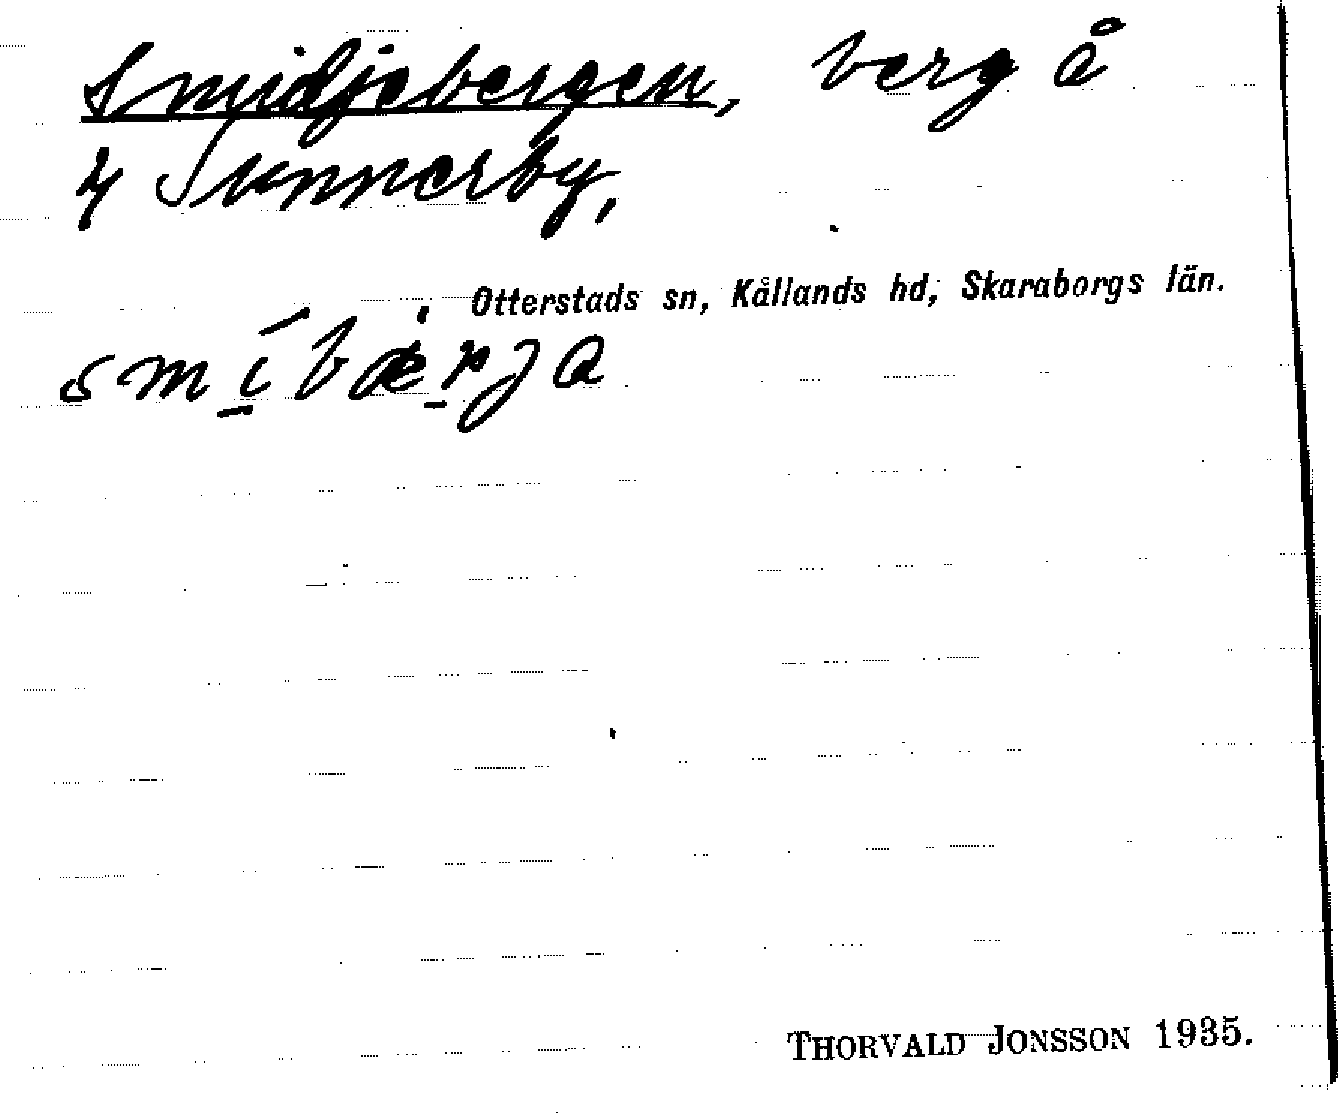 Smidjebergen, berg å
4 Sunnerby,
Otterstads sn, Kållands hd, Skaraborgs län.
smi̱bæ̱rja
THORVALD JONSSON 1935.